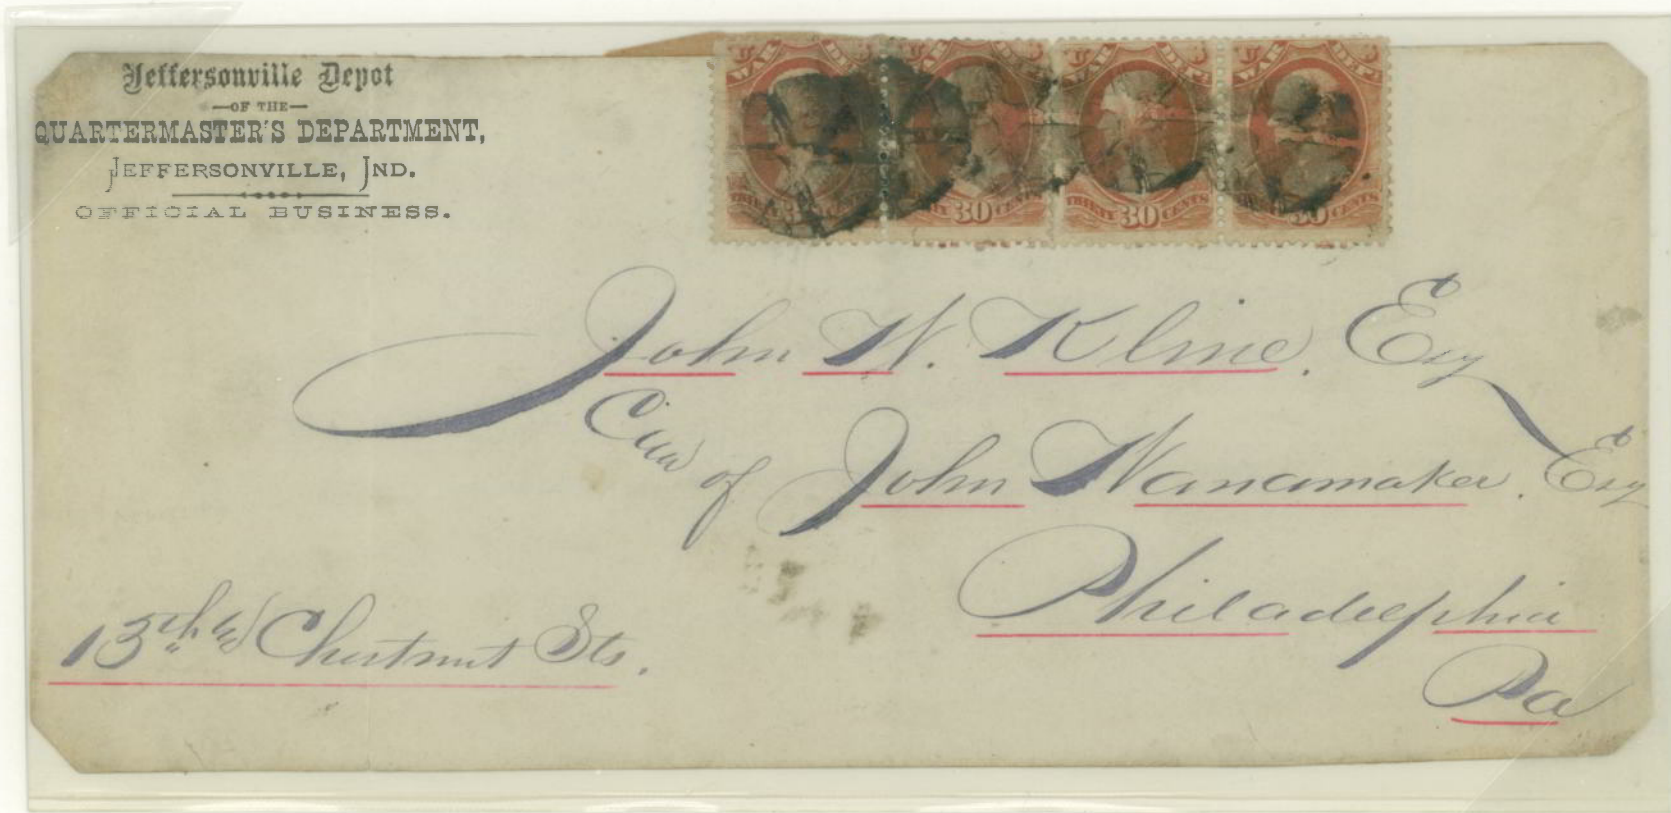 Jeffersonville Depot
—OF THE—
QUARTERMASTER'S DEPARTMENT,
JEFFERSONVILLE, IND.
OFFICIAL BUSINESS.
U WAR DEP
WAR
WAR DEPT
U WAR DEPT
THIRTY 30 CENTS
30 CENTS
THIRTY 30 CENTS
30 CENTS
John W. Kline, Esq
Care of John Wanamaker. Esq
Philadelphia
Pa
13th & Chestnut Sts.